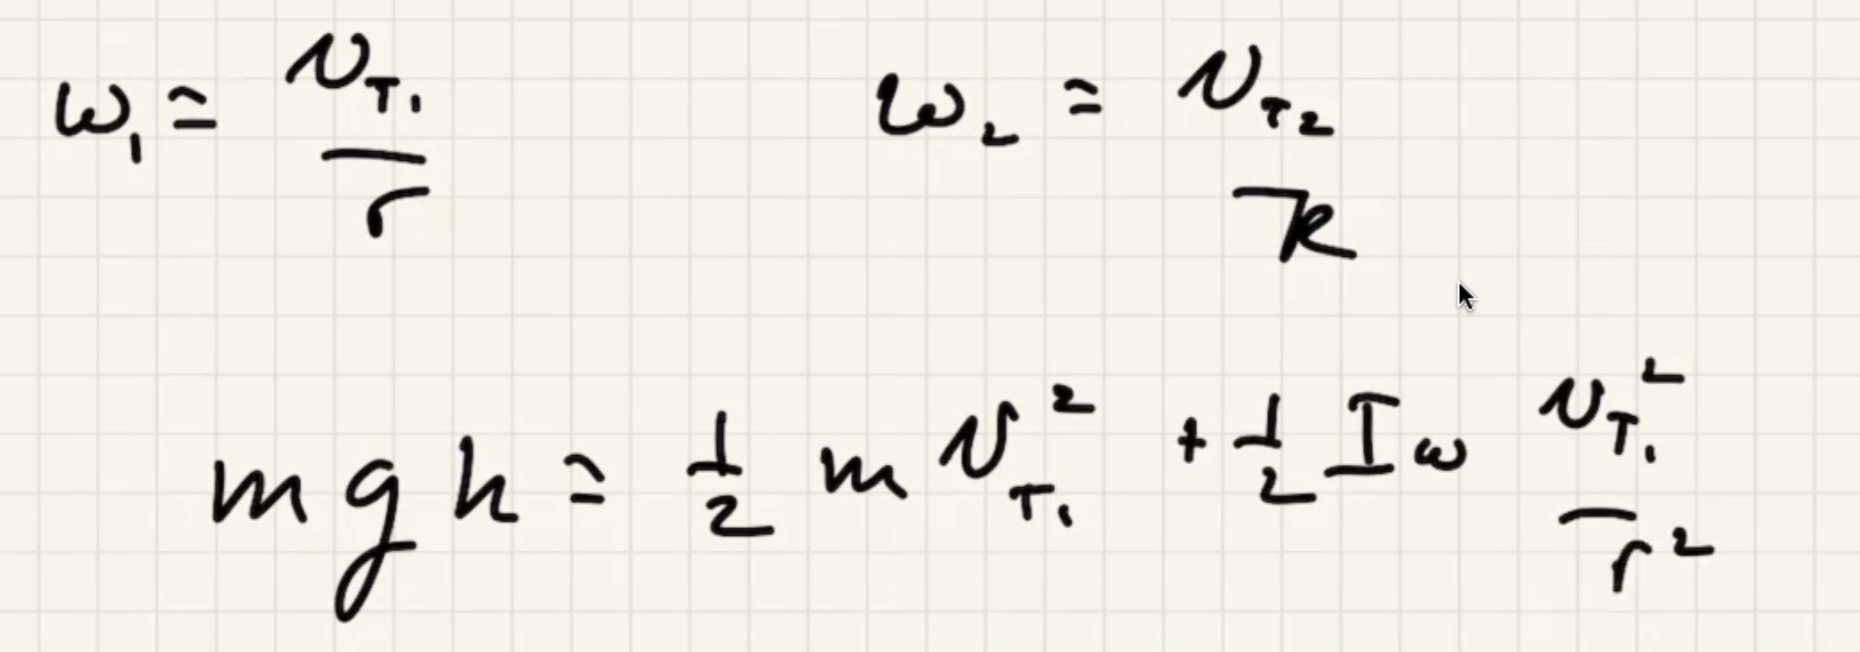 ω₁ = v_T₁ / r    ω₂ = v_T₂ / R
m g h = 1/2 m v_T₁² + 1/2 I ω v_T₁² / r²